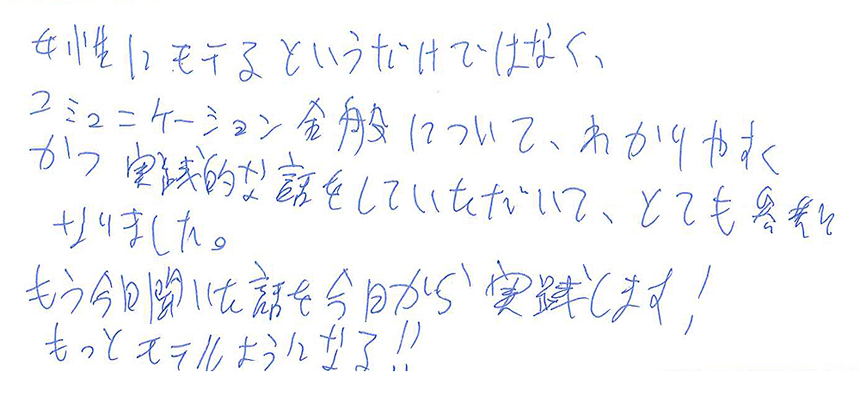 女性にモテるというだけではなく、
コミュニケーション全般について、わかりやすく
かつ実践的な話をしていただいて、とても参考に
なりました。
もう今日聞いた話を今日から実践します!
もっとモテルようになる!!